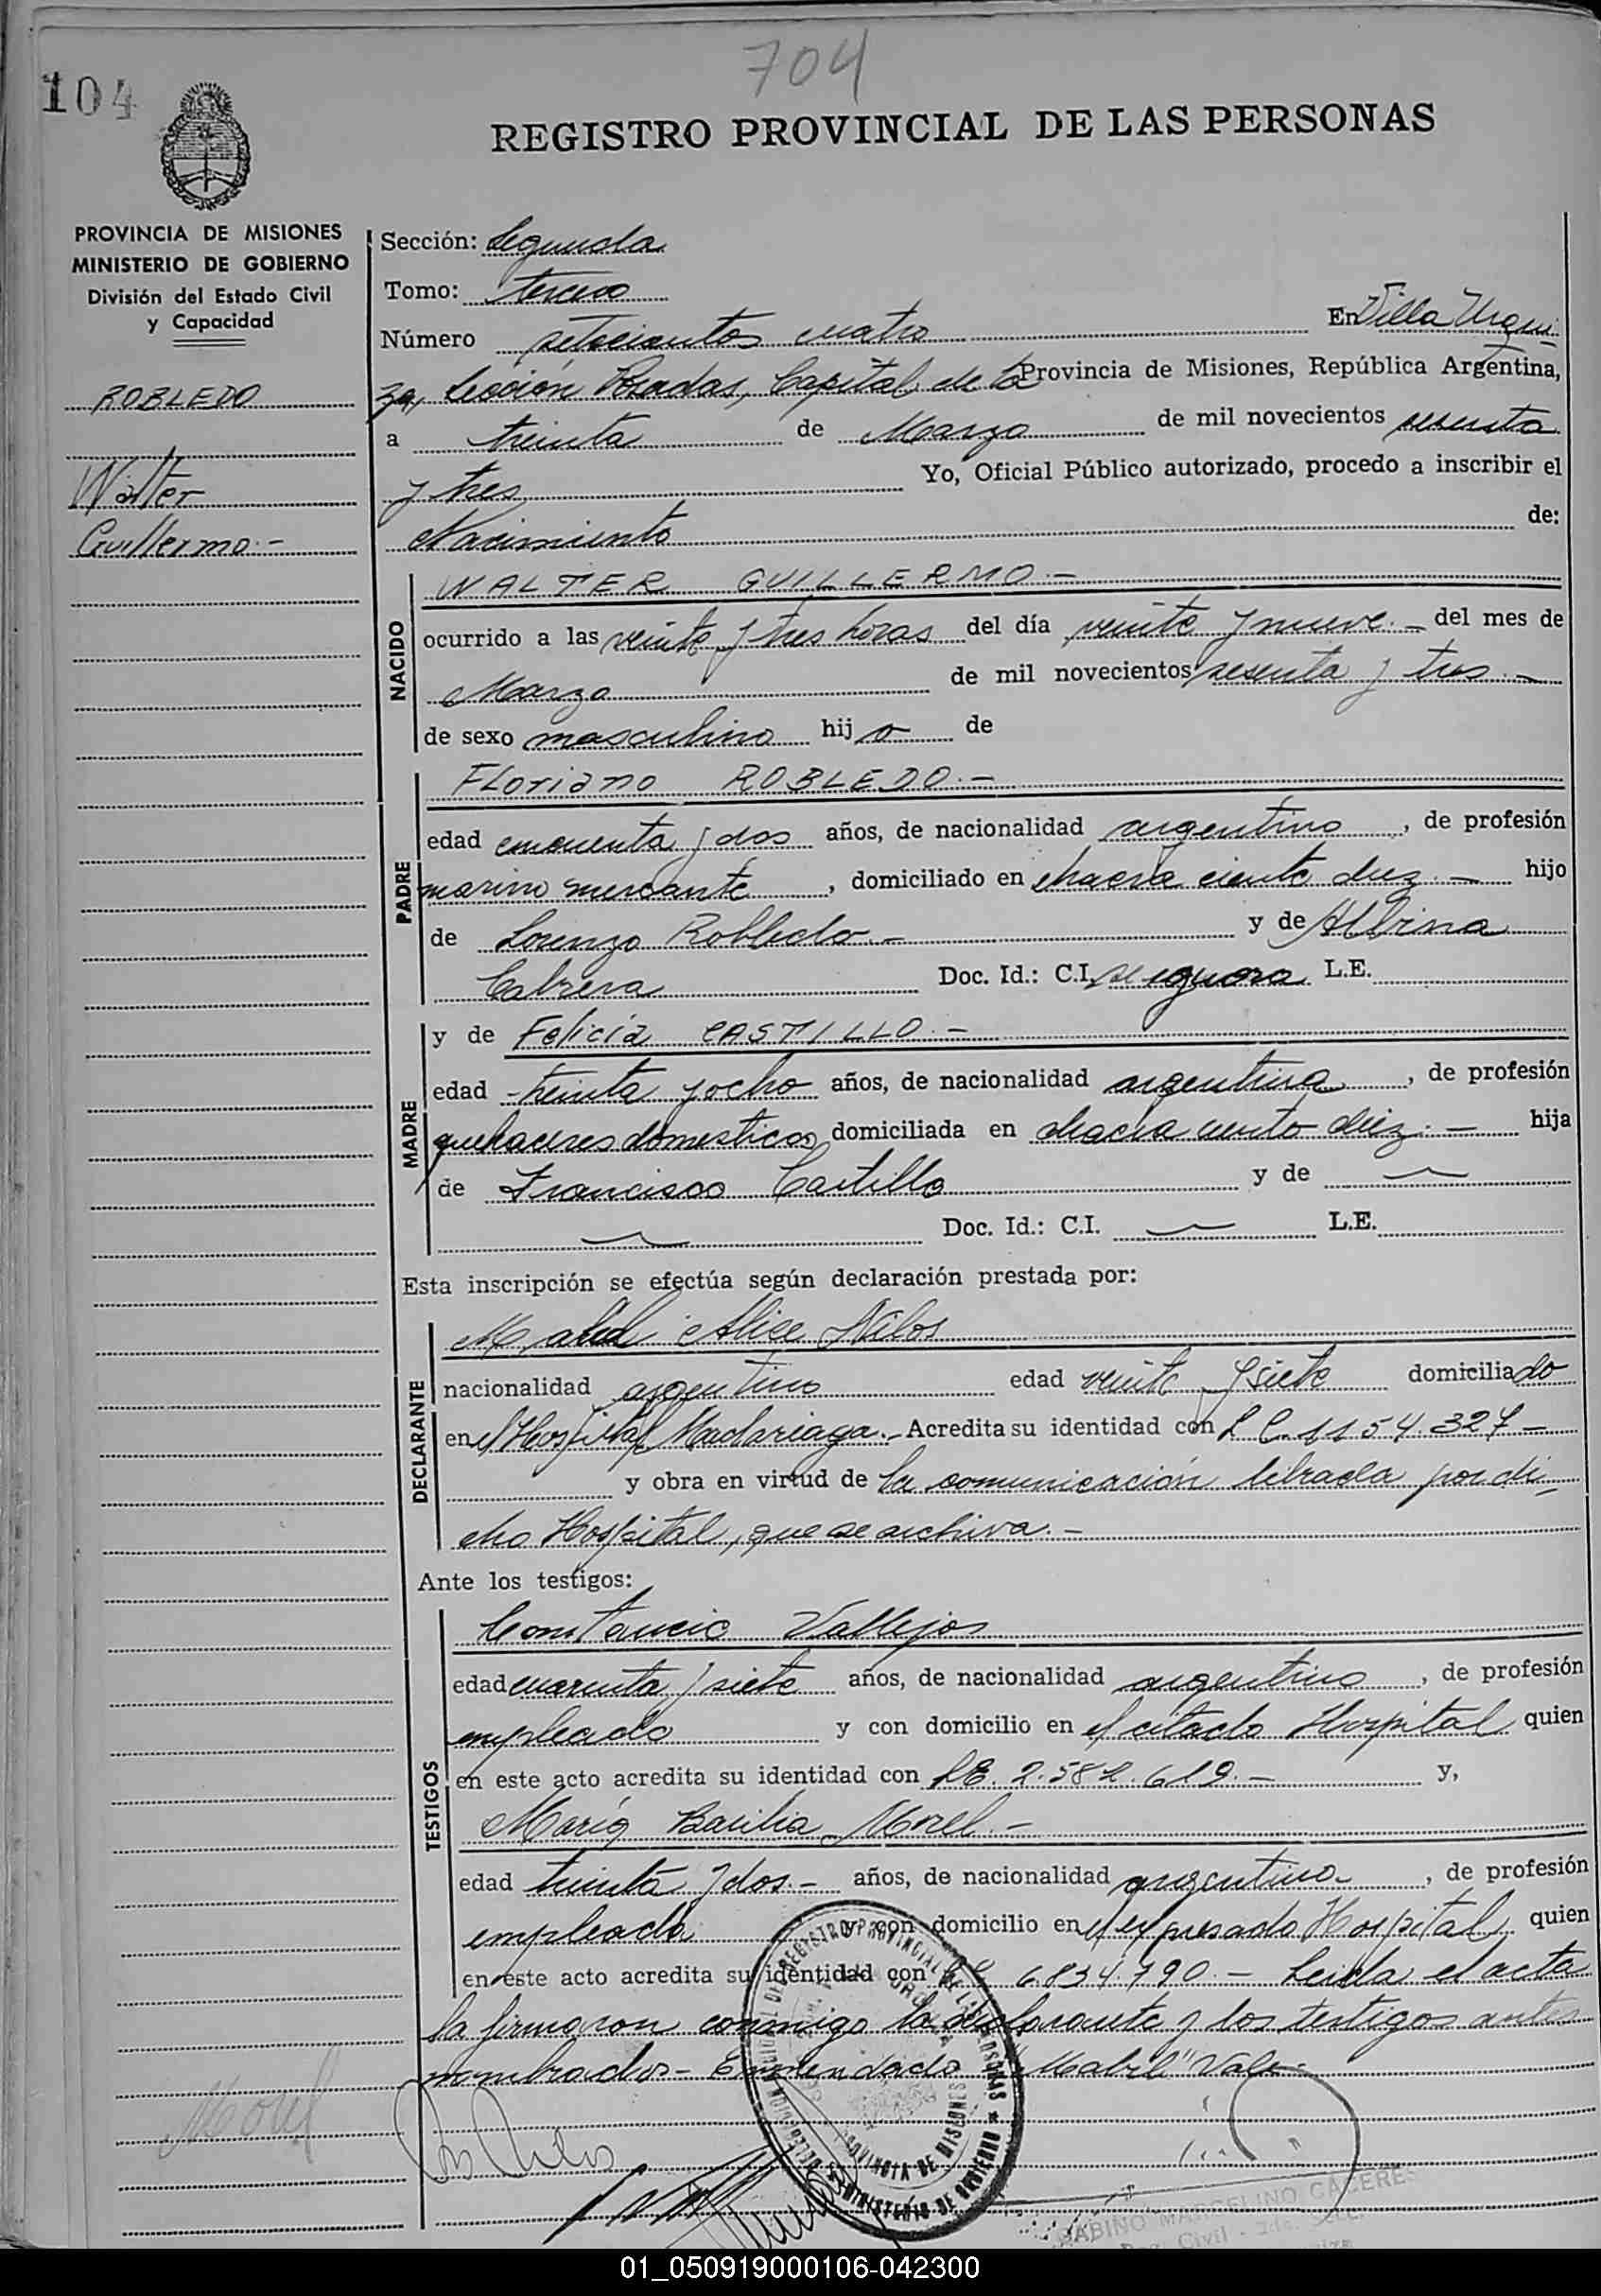 704
104
REGISTRO PROVINCIAL DE LAS PERSONAS
PROVINCIA DE MISIONES
MINISTERIO DE GOBIERNO
División del Estado Civil
y Capacidad
ROBLEDO
Walter
Guillermo.-
Sección: Segunda
Tomo: tercero
Número setecientos cuatro En Villa Urqui
za, Sección Posadas, Capital de la Provincia de Misiones, República Argentina,
a treinta de Marzo de mil novecientos sesenta
y tres Yo, Oficial Público autorizado, procedo a inscribir el
Nacimiento de:
NACIDO
WALTER GUILLERMO.-
ocurrido a las veinte y tres horas del día veinte y nueve.- del mes de
Marzo de mil novecientos sesenta y tres.-
de sexo masculino hijo de
PADRE
Floriano ROBLEDO.-
edad cincuenta y dos años, de nacionalidad argentino, de profesión
marino mercante, domiciliado en chacra ciento diez.- hijo
de Lorenzo Robledo.- y de Albina
Cabrera Doc. Id.: C.I. se ignora L.E.
MADRE
y de Felicia CASTILLO.-
edad treinta y ocho años, de nacionalidad argentina, de profesión
quehaceres domesticos, domiciliada en chacra ciento diez.- hija
de Francisco Castillo y de
Doc. Id.: C.I. L.E.
Esta inscripción se efectúa según declaración prestada por:
DECLARANTE
Alice Nilos
nacionalidad argentino edad veinte y siete domiciliado
en el Hospital Madariaga.- Acredita su identidad con L C. 1154.327-
y obra en virtud de la comunicación librada por di
cho Hospital, que se archiva.-
Ante los testigos:
TESTIGOS
Constancio Vallejos
edad cuarenta y siete años, de nacionalidad argentino, de profesión
empleado y con domicilio en el citado Hospital quien
en este acto acredita su identidad con LE. 2.582.619.- y,
María Basilia Morel.-
edad treinta y dos.- años, de nacionalidad argentino, de profesión
empleada y con domicilio en el expresado Hospital quien
en este acto acredita su identidad con 6.834.790.- Leida el acta
la firmaron conmigo la declarante y los testigos antes
nombrados- Enmendado "Mabel" Vale.
Morel
DELEGACION REGISTRO PROVINCIAL DE LAS PERSONAS * MINISTERIO DE GOBIERNO
PROVINCIA DE MISIONES
MARCELINO CACERES
Civil
01_050919000106-042300